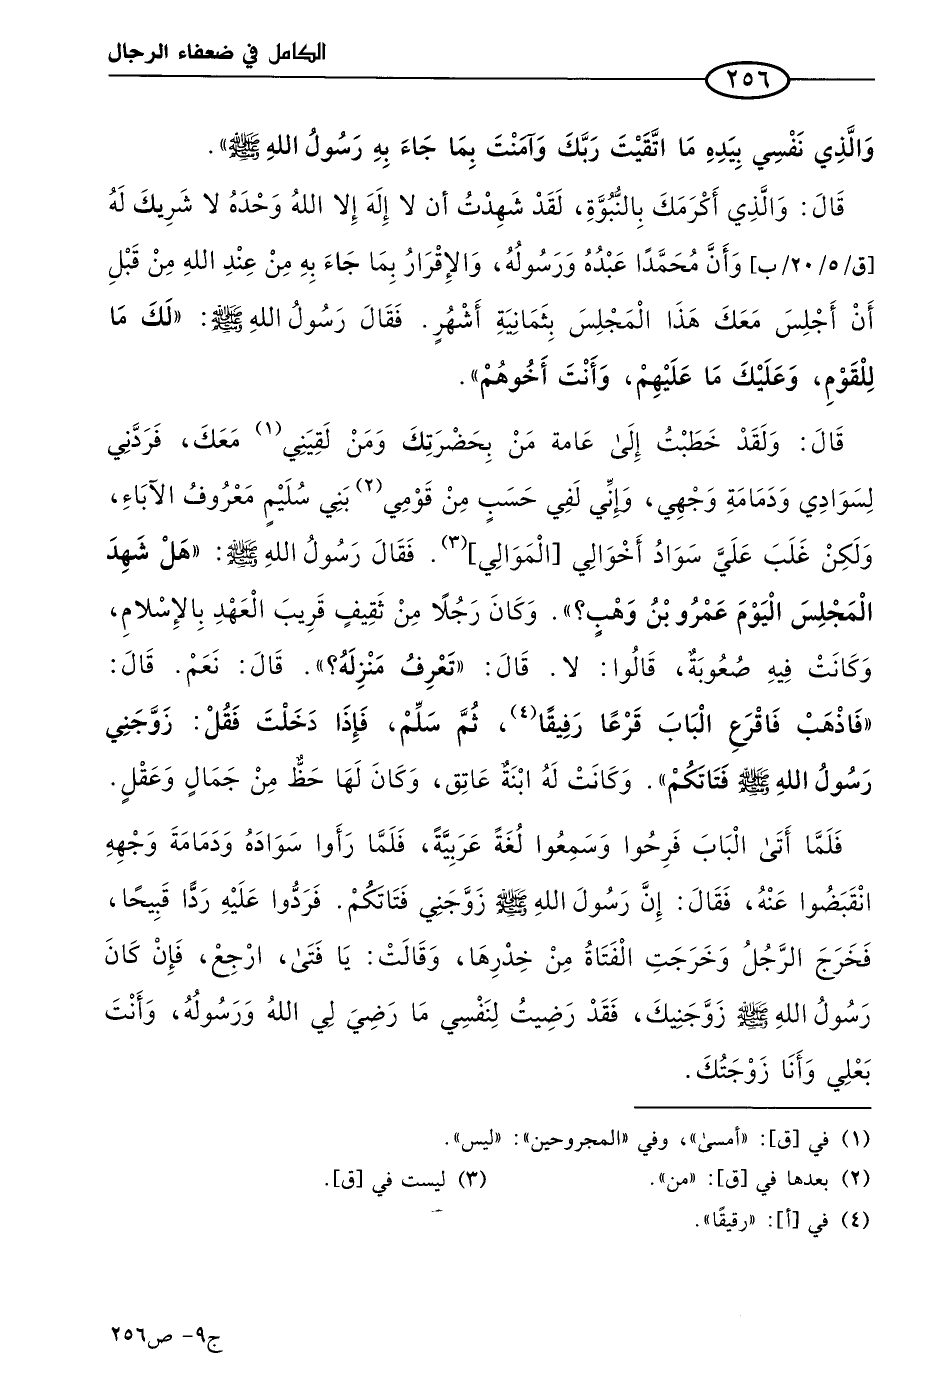 الكامل في ضعفاء الرجال
٢٥٦
وَالَّذِي نَفْسِي بِيَدِهِ مَا اتَّقَيْتَ رَبَّكَ وَآمَنْتَ بِمَا جَاءَ بِهِ رَسُولُ اللهِ ﷺ».
قَالَ: وَالَّذِي أَكْرَمَكَ بِالنُّبُوَّةِ، لَقَدْ شَهِدْتُ أن لا إِلَهَ إِلا اللهُ وَحْدَهُ لا شَرِيكَ لَهُ
[ق/٢٠/٥/ب] وَأَنَّ مُحَمَّدًا عَبْدُهُ وَرَسُولُهُ، وَالإِقْرَارُ بِمَا جَاءَ بِهِ مِنْ عِنْدِ اللهِ مِنْ قَبْلِ
أَنْ أَجْلِسَ مَعَكَ هَذَا الْمَجْلِسَ بِثَمَانِيَةِ أَشْهُرٍ. فَقَالَ رَسُولُ اللهِ ﷺ: «لَكَ مَا
لِلْقَوْمِ، وَعَلَيْكَ مَا عَلَيْهِمْ، وَأَنْتَ أَخُوهُمْ».
قَالَ: وَلَقَدْ خَطَبْتُ إِلَىٰ عَامة مَنْ بِحَضْرَتِكَ وَمَنْ لَقِيَنِي(١) مَعَكَ، فَرَدَّنِي
لِسَوَادِي وَدَمَامَةِ وَجْهِي، وَإِنِّي لَفِي حَسَبٍ مِنْ قَوْمِي(٢) بَنِي سُلَيْمٍ مَعْرُوفُ الآبَاءِ،
وَلَكِنْ غَلَبَ عَلَيَّ سَوَادُ أَخْوَالِي [الْمَوَالِي](٣). فَقَالَ رَسُولُ اللهِ ﷺ: «هَلْ شَهِدَ
الْمَجْلِسَ الْيَوْمَ عَمْرُو بْنُ وَهْبٍ؟». وَكَانَ رَجُلًا مِنْ ثَقِيفٍ قَرِيبَ الْعَهْدِ بِالإِسْلامِ،
وَكَانَتْ فِيهِ صُعُوبَةٌ، قَالُوا: لا. قَالَ: «تَعْرِفُ مَنْزِلَهُ؟». قَالَ: نَعَمْ. قَالَ:
«فَاذْهَبْ فَاقْرَعِ الْبَابَ قَرْعًا رَفِيقًا(٤)، ثُمَّ سَلِّمْ، فَإِذَا دَخَلْتَ فَقُلْ: زَوَّجَنِي
رَسُولُ اللهِ ﷺ فَتَاتَكُمْ». وَكَانَتْ لَهُ ابْنَةٌ عَاتِق، وَكَانَ لَهَا حَظٌّ مِنْ جَمَالٍ وَعَقْلٍ.
فَلَمَّا أَتَىٰ الْبَابَ فَرِحُوا وَسَمِعُوا لُغَةً عَرَبِيَّةً، فَلَمَّا رَأَوا سَوَادَهُ وَدَمَامَةَ وَجْهِهِ
انْقَبَضُوا عَنْهُ، فَقَالَ: إِنَّ رَسُولَ اللهِ ﷺ زَوَّجَنِي فَتَاتَكُمْ. فَرَدُّوا عَلَيْهِ رَدًّا قَبِيحًا،
فَخَرَجَ الرَّجُلُ وَخَرَجَتِ الْفَتَاةُ مِنْ خِدْرِهَا، وَقَالَتْ: يَا فَتَىٰ، ارْجِعْ، فَإِنْ كَانَ
رَسُولُ اللهِ ﷺ زَوَّجَنِيكَ، فَقَدْ رَضِيتُ لِنَفْسِي مَا رَضِيَ لِي اللهُ وَرَسُولُهُ، وَأَنْتَ
بَعْلِي وَأَنَا زَوْجَتُكَ.
(١) في [ق]: «أمسىٰ»، وفي «المجروحين»: «ليس».
(٢) بعدها في [ق]: «من». (٣) ليست في [ق].
(٤) في [أ]: «رقيقًا».
ج٩- ص٢٥٦